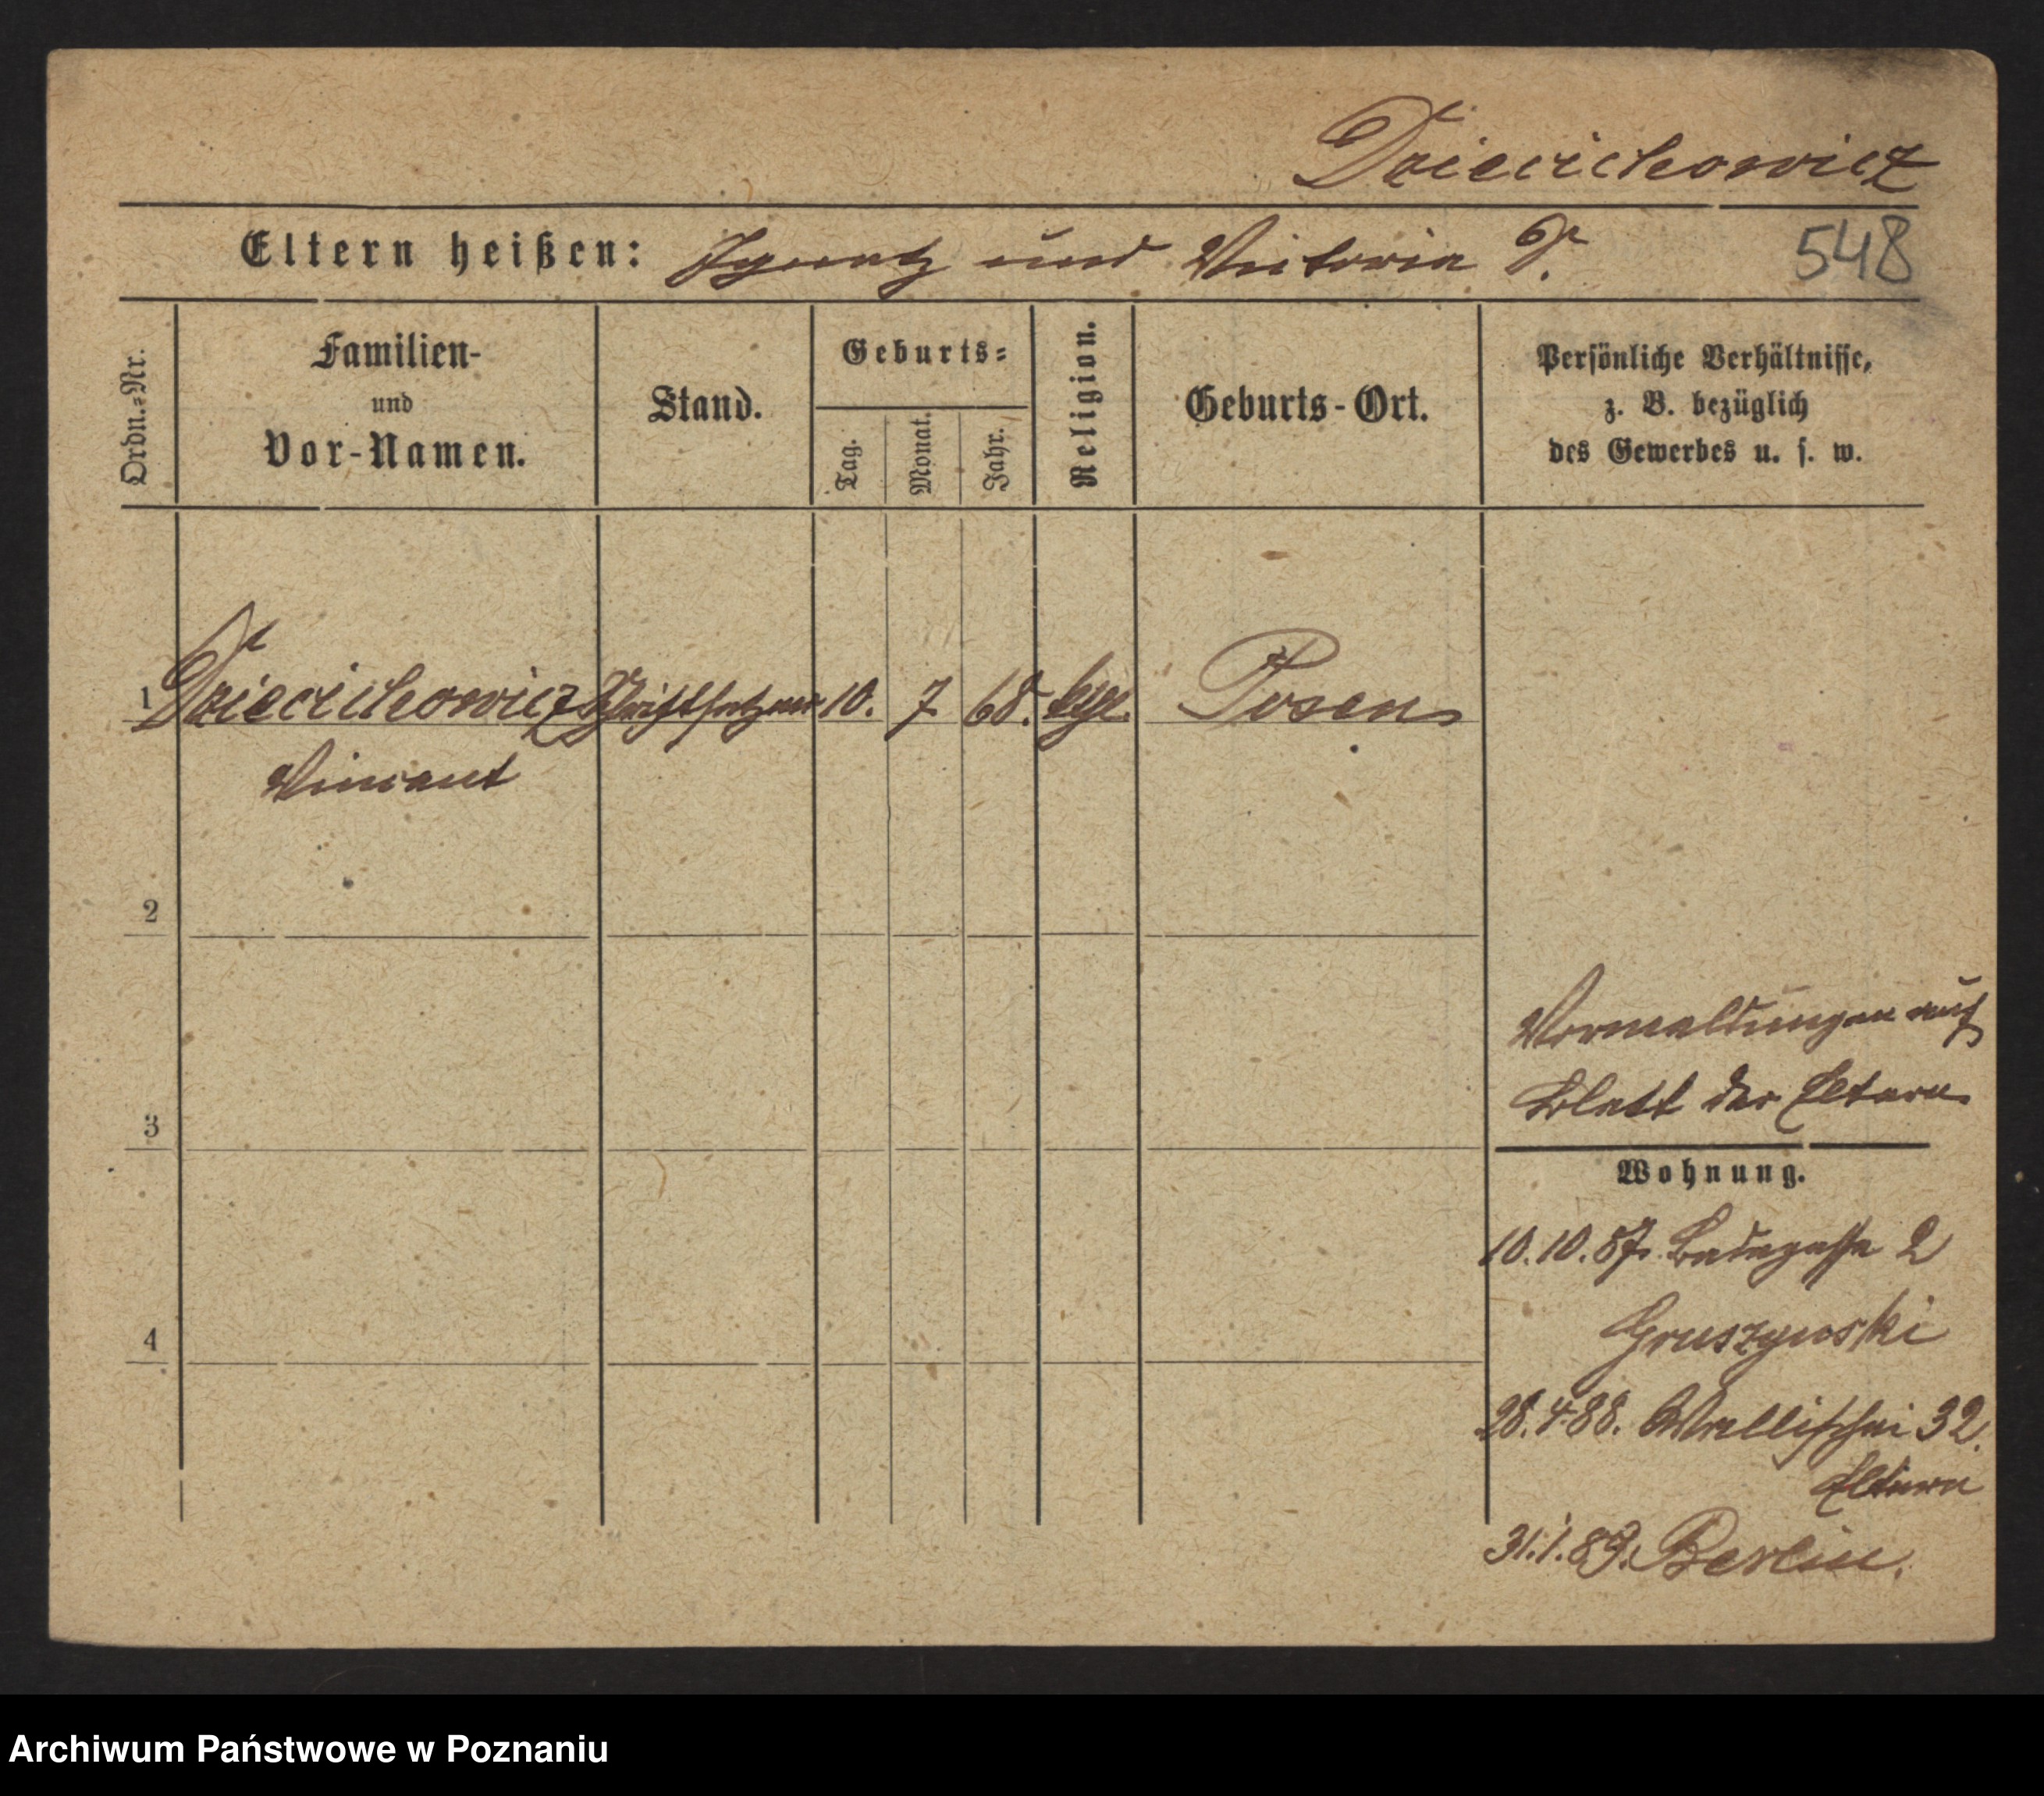 Dziecichowicz
Eltern heißen: Ignatz und Victoria D.
548
Ordn.-Nr.
Familien-
und
Vor-Namen.
Stand.
Geburts-
Tag.
Monat.
Jahr.
Religion.
Geburts-Ort.
Persönliche Verhältnisse,
z. B. bezüglich
des Gewerbes u. s. w.
1 Dziecichowicz Schriftsetzer 10. 7 68. Posen
Vincent
2
3
4
Vormeldungen auf
Blatt der Eltern
Wohnung.
10.10.87. Badegasse 2
Gruszynski
28.4.88. Wallischei 32.
Eltern
31.1.89. Berlin.
Archiwum Państwowe w Poznaniu